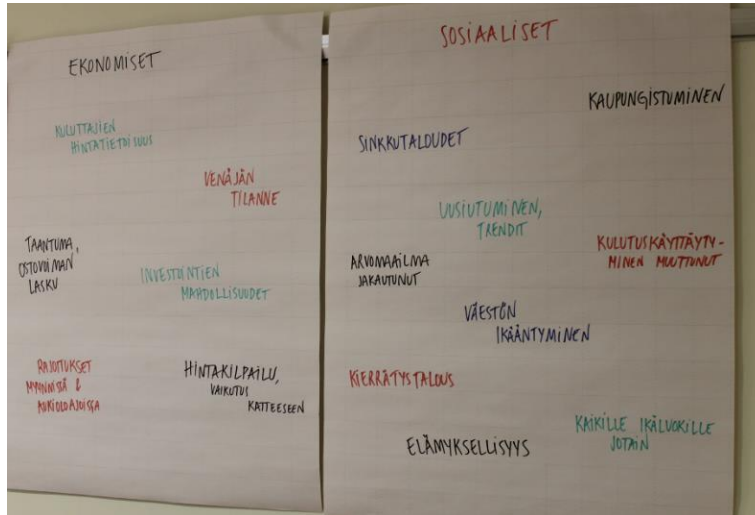 EKONOMISET
KULUTTAJIEN
HINTATIETOISUUS
VENÄJÄN
TILANNE
TAANTUMA,
OSTOVOIMAN
LASKU
INVESTOINTIEN
MAHDOLLISUUDET
RAJOITUKSET
MYYNNISSÄ &
AUKIOLOAJOISSA
HINTAKILPAILU,
VAIKUTUS
KATTEESEEN
SOSIAALISET
KAUPUNGISTUMINEN
SINKKUTALOUDET
UUSIUTUMINEN,
TRENDIT
ARVOMAAILMA
JAKAUTUNUT
KULUTUSKÄYTTÄYTY-
MINEN MUUTTUNUT
VÄESTÖN
IKÄÄNTYMINEN
KIERRÄTYSTALOUS
KAIKILLE IKÄLUOKILLE
JOTAIN
ELÄMYKSELLISYYS